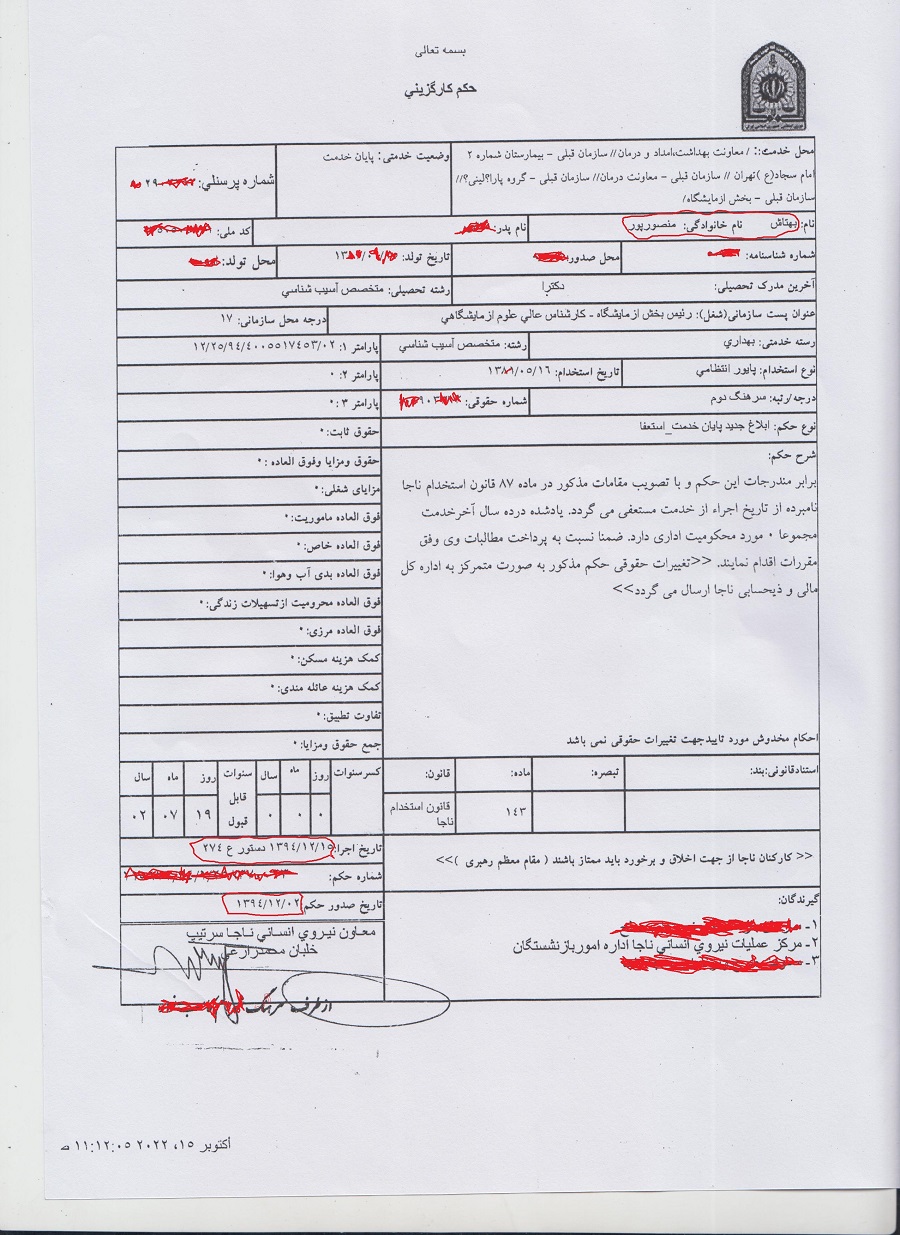 بسمه تعالی
حکم کارگزیني
محل خدمت: / معاونت بهداشت،امداد و درمان// سازمان قبلی - بیمارستان شماره ۲
امام سجاد(ع )تهران // سازمان قبلی - معاونت درمان// سازمان قبلی - گروه پارا?لینی?//
سازمان قبلی - بخش ازمایشگاه/
وضعیت خدمتی: پایان خدمت
شماره پرسنلي:
نام: بهتاش
نام خانوادگی: منصورپور
نام پدر:
کد ملی:
شماره شناسنامه:
محل صدور:
تاریخ تولد:
محل تولد:
آخرین مدرک تحصیلی: دکترا
رشته تحصیلی: متخصص آسیب شناسي
عنوان پست سازمانی(شغل): رئیس بخش ازمایشگاه - کارشناس عالي علوم ازمایشگاهي
درجه محل سازمانی: ۱۷
رسته خدمتی: بهداري
رشته: متخصص آسیب شناسي
پارامتر ۱: ۱۲/۲۵/۹۴/۴۰۰۵۵۱۷۴۵۳/۰۲
نوع استخدام: پایور انتظامي
تاریخ استخدام: ۱۳۸۱/۰۵/۱۶
پارامتر ۲: ۰
درجه/رتبه: سرهنگ دوم
شماره حقوقی:
پارامتر ۳ : ۰
نوع حکم: ابلاغ جدید پایان خدمت_استعفا
حقوق ثابت: ۰
شرح حکم:
برابر مندرجات این حکم و با تصویب مقامات مذکور در ماده ۸۷ قانون استخدام ناجا
نامبرده از تاریخ اجراء از خدمت مستعفی می گردد. یادشده درده سال آخرخدمت
مجموعا ۰ مورد محکومیت اداری دارد. ضمنا نسبت به پرداخت مطالبات وی وفق
مقررات اقدام نمایند. <<تغییرات حقوقی حکم مذکور به صورت متمرکز به اداره کل
مالی و ذیحسابی ناجا ارسال می گردد>>
احکام مخدوش مورد تاییدجهت تغییرات حقوقی نمی باشد
حقوق ومزایا وفوق العاده : ۰
مزایای شغلی: ۰
فوق العاده ماموریت: ۰
فوق العاده خاص: ۰
فوق العاده بدی آب وهوا: ۰
فوق العاده محرومیت ازتسهیلات زندگی: ۰
فوق العاده مرزی: ۰
کمک هزینه مسکن: ۰
کمک هزینه عائله مندی: ۰
تفاوت تطبیق: ۰
جمع حقوق ومزایا: ۰
استنادقانونی:بند: تبصره: ماده: قانون:
۱۴۳ قانون استخدام ناجا
کسرسنوات روز ماه سال
۰ ۰ ۰
سنوات قابل قبول روز ماه سال
۱۹ ۰۷ ۰۲
<< کارکنان ناجا از جهت اخلاق و برخورد باید ممتاز باشند ( مقام معظم رهبری )>>
تاریخ اجرا: ۱۳۹٤/۱۲/۱۵ دستور ع ۲۷٤
شماره حکم:
تاریخ صدور حکم: ۱۳۹٤/۱۲/۰۲
گیرندگان:
۱-
۲- مرکز عملیات نیروي انساني ناجا اداره اموربازنشستگان
۳-
معاون نیروي انساني ناجا سرتیپ
خلبان محمدزارعي
از طرف سرهنگ
أکتوبر ۱۵، ۲۰۲۲ ۱۱:۱۲:۰۵ ص